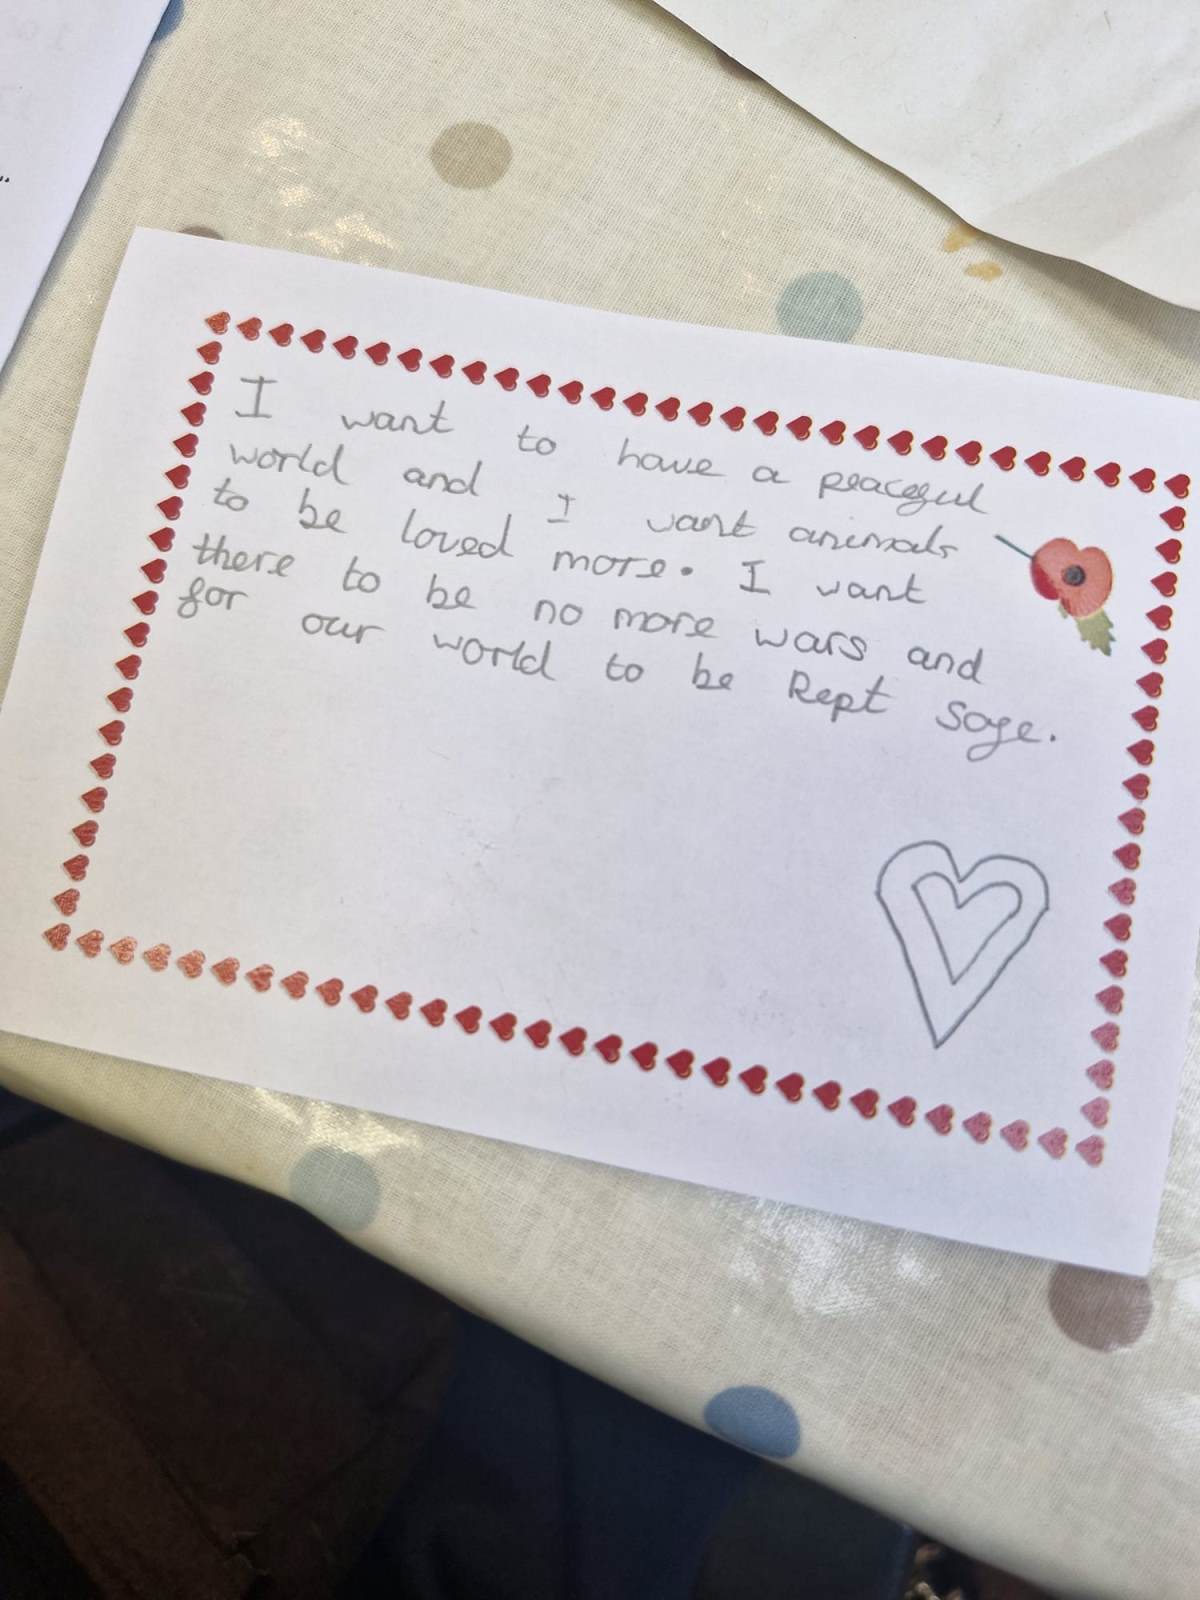 I want to have a peaceful
world and I want animals
to be loved more. I want
there to be no more wars and
for our world to be kept safe.